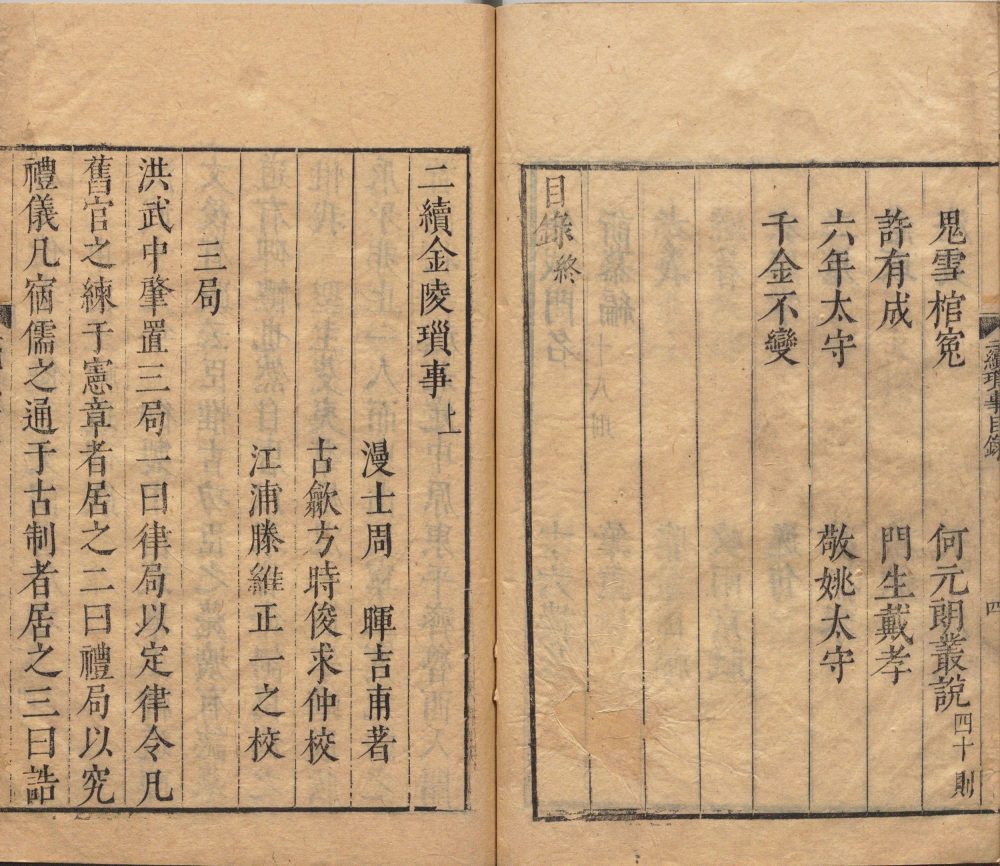 鬼雪棺冤 何元朗叢說四十則
許有成 門生戴孝
六年太守 敬姚太守
千金不變
目錄終
二續金陵瑣事上
漫士周 暉吉甫著
古歙方時俊求仲校
江浦滕維正一之校
三局
洪武中肇置三局一曰律局以定律令凡
舊官之練于憲章者居之二曰禮局以究
禮儀凡宿儒之通于古制者居之三曰誥
二續瑣事目錄
四